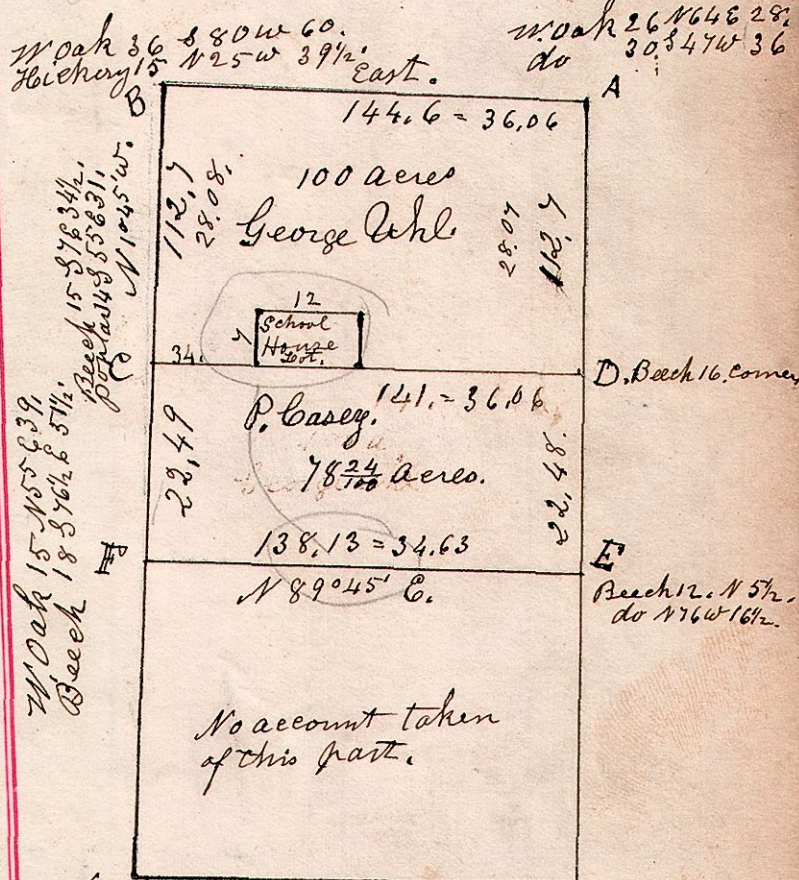 W Oak 36 S 80 W 60.
Hickory 15 N 25 W 39½.
W. Oak 26 N 64 E 28.
do 30 S 47 W 36
East.
B
A
144.6 = 36.06
100 acres
George Uhl.
112.7
28.08.
28.07
112.7
N 1°45' W.
Beech 15 S 76 34½.
Poplar 14 S 55 E 31.
12
7
School
House
Lot.
34.
C
D. Beech 16. corner
P. Casey.
141. = 36.06
78 24/100 acres.
22,49
22,48.
138,13 = 34.63
F
E
N 89°45' E.
Beech 12. N 5½.
do N 76 W 16½.
W Oak 15 N 55 E 39.
Beech 18 S 76½ E 51½.
No account taken
of this part.